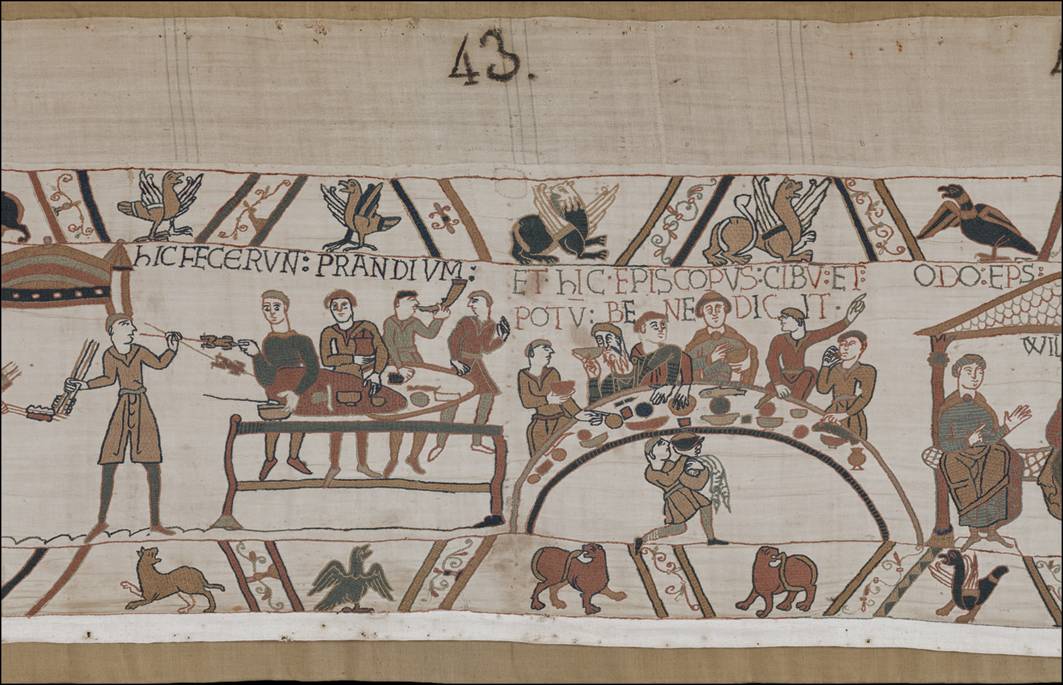 43.
hIC FECERVN: PRANDIVM:
ET· hIC· EPISCOPVS: CIBV̄: ET:
POTV̄: BENEDICIT·
ODO: EPS:
WIL